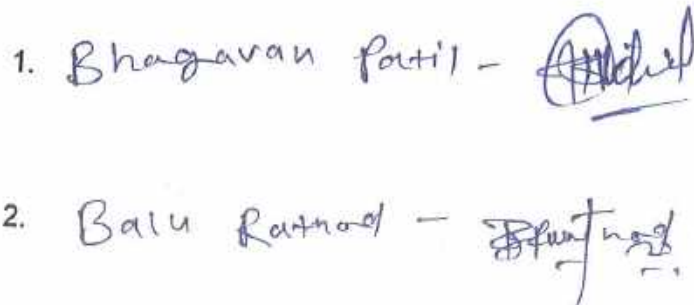 1. Bhagavan Patil -
2. Balu Rathod -